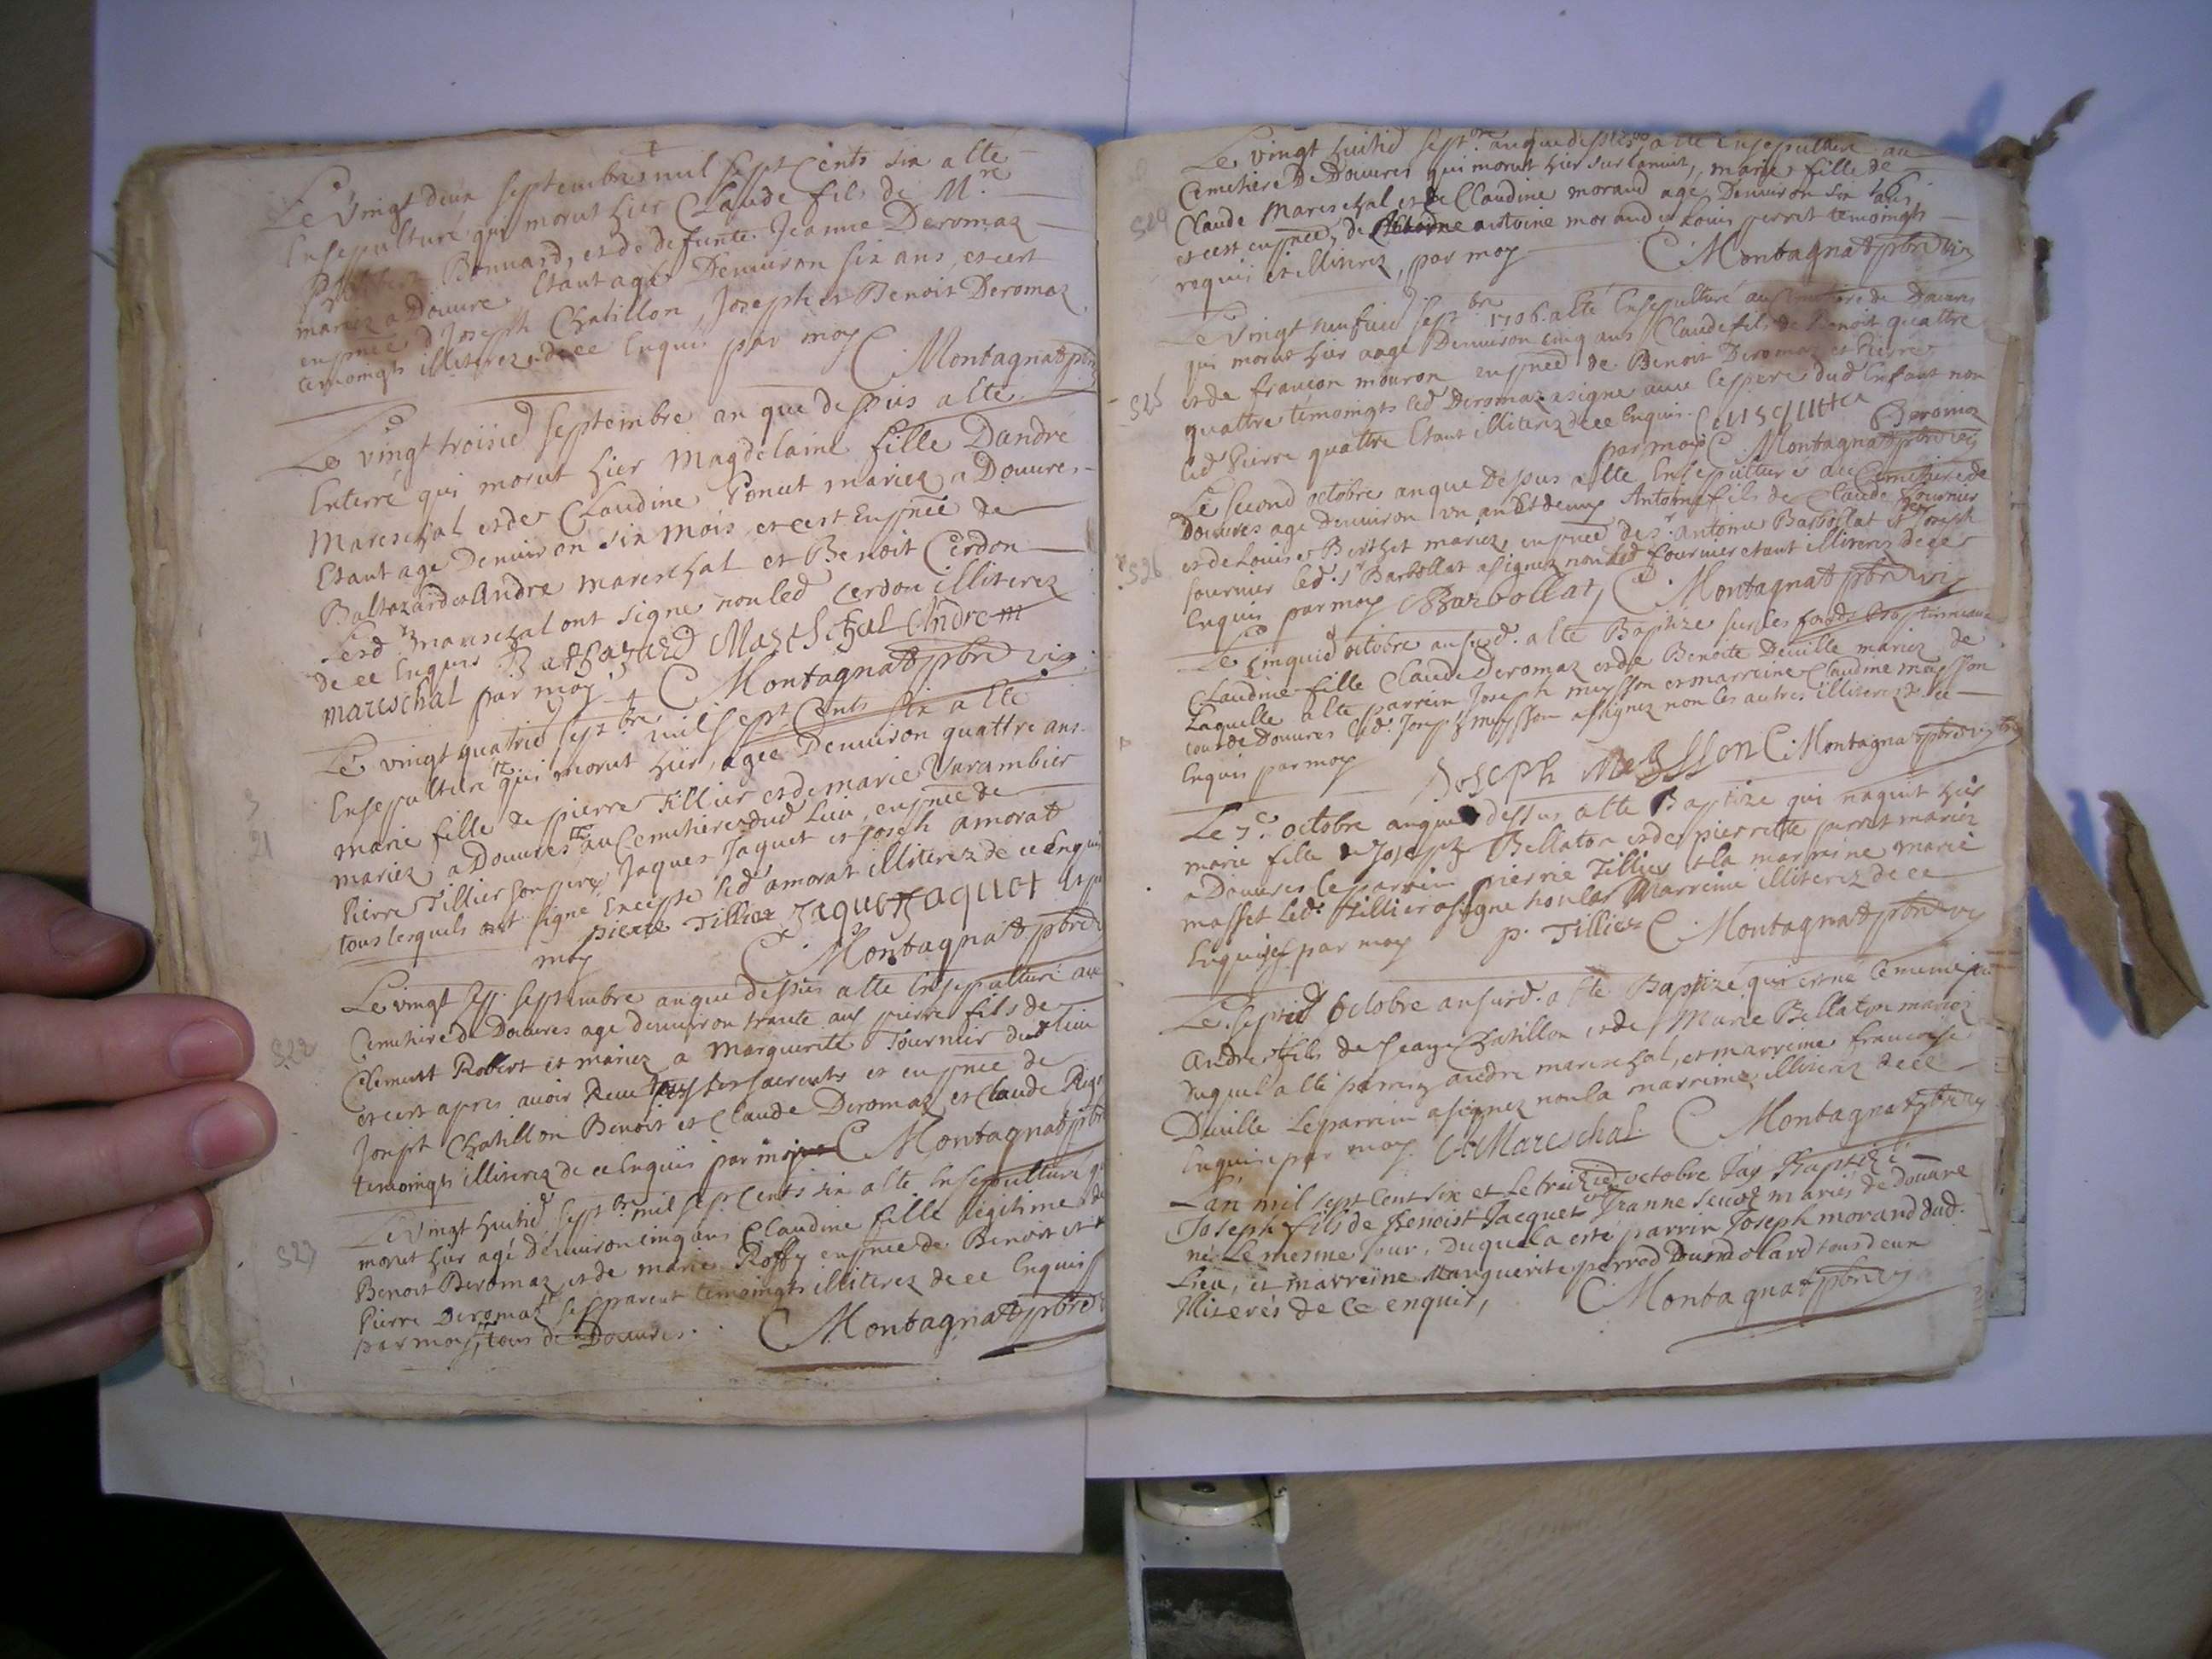 Le vingt deux septembre mil sept cents six a esté
Ensepulturé qui morut hier Claude fils de M.re
Bonnard, et de defunte Jeanne Deromaz
mariez a Douvre Etant agé Denuiron six ans, et cest
en pñce d Joseph Chatillon, Joseph et Benoit Deromaz
temoingts illiterez de ce Enquis par moy C Montagnat pbre
Le vingt troisie septembre an que dessus a esté
Enterré qui morut hier Magdelaine fille Dandré
Mareschal et de Claudine Ponut mariez a Douures
Etant agé Denuiron six mois et cest En pñce de
Baltazard et Andre mareschal et Benoit Cerdon
Lesd mareschal ont signe non led Cerdon illiterez
de ce Enquis Baltazard Mareschal Andre m
mareschal par moy C Montagnat pbre vic
Le vingt quatrie sept.bre mil sept Cents six a esté
Ensepulturé qui morut hier, agée Denuiron quattre ans
marie fille de pierre Tillier et de marie Varambier
mariez a Douures au Cemetiere dud Lieu, en pñce de
Pierre Tillier son pere Jaques Jaquet et Joseph amorat
tous lesquels ont signé Excepte led amorat illiterez de ce Enquis
pierre Tillier Jaque Jaquet et p
moy C Montagnat pbre
Le vingt sep. septembre an que dessus a esté Ensepulturé au
Cemetiere de Douures agé denuiron trante ans pierre fils de
522
Clement Robert et mariez a Marguerite Fournier dud lieu
et cest apres auoir Receu tous les sacrents et en pñce de
Joseph Chatillon Benoit et Claude Deromaz et Claude
temoingts illiterez de ce Enquis par moy C Montagnat pbre
Le vingt huitie sept.bre mil sept Cents six a esté Ensepulturé q
523
morut hier agé Denuiron cinq ans Claudine fille legitime de
Benoit Deromaz et de marie Roffy en pñce de Benoit et
Pierre Deromaz ses parent temoingts illiterez de ce Enquis
par moy tous de Douures. C Montagnat pbre
Le vingt huitie sept.bre an que dessus a esté Ensepulturé au
Cemetiere De Douures qui morut hier sur la nuit, marie fille de
524
Claude Mareschal et de Claudine morand agé Denuiron six ans
et cest en pñce de antoine morand et Louis perret temoingts
requis et illiterez, par moy C Montagnat pbre vic
Le Vingt neufuie sept.bre 1706. a esté Ensepulturé au Cemetiere de Douures
qui morut hier aagé Denuiron cinq ans Claude fils de Benoit quattre
525
et de francon mouron en pñce de Benoit Deromaz et Pierre
quattre temoingts led Deromaz a signe auec le pere dud Enfant non
led Pierre quattre Etant illiterez de ce Enquis. Deromaz
par moy C Montagnat pbre vic
Le second octobre an que Dessus a esté Ensepulturé au Cemetiere de
Douures agé denuiron un an Et demy Antoine fils de Claude fournier
526
et de Louise Berthet mariez en pñce de s.r antoine Barbollat et Joseph
fournier led. s.r Barbollat a signez non led fournier etant illiterez de ce
Enquis par moy Barbollat, C Montagnat pbre vic
Le Cinquie octobre an susd. a esté Baptize sur les fonds baptismaux
Claudine fille Claude Deromaz et de Benoite Deville mariez de
Laquelle a esté parrein Joseph meysson et marreine Claudine meysson
tous de Douures led. Joseph meysson a signez non les autres illiterez de ce
Enquis par moy Joseph Meysson C Montagnat pbre vic
Le 7.e octobre an que dessus a esté Baptize qui naquit hier
marie fille de Joseph Bellaton et de pierrette perret mariez
a Douures le parrein pierre Tillier et la marreine marie
masset led. Tillier a signe non la Marreine illiterez de ce
Enquise par moy p. Tillier C Montagnat pbre vic
Le septie Octobre an susd. a esté Baptizé qui est né le meme jour
andré fils de Jean Chatillon, et de Marie Bellaton mariez
duquel a esté parrein andre mareschal, et marreine francoise
Deville Le parrein a signez non la marreine illiterez de ce
Enquise par moy. A Mareschal C Montagnat pbre vic
Lan mil sept Cent six et Le treizie octobre Jay Baptizé
Joseph fils de Benoist Jacquet et Jeanne mariés de Douure
né Le mesme Jour, duquel a esté parrin Joseph morand dud.
Lieu, et marreine Marguerite perred tous deux
Illiteres de Ce enquis, C Montagnat pbre vic